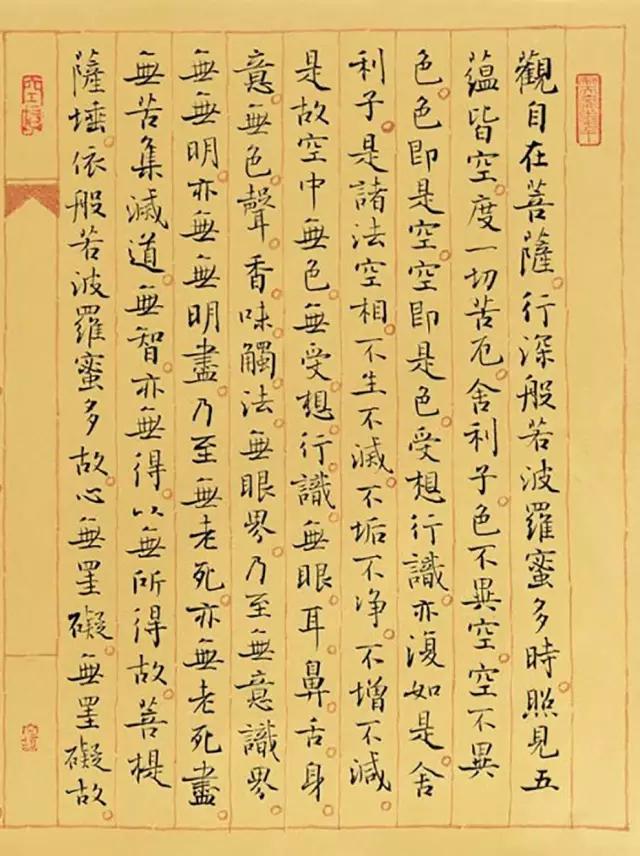 觀自在菩薩。行深般若波羅蜜多時。照見五
蘊皆空。度一切苦厄。舍利子。色不異空。空不異
色。色即是空。空即是色。受想行識。亦復如是。舍
利子。是諸法空相。不生不滅。不垢不净。不增不減。
是故空中無色。無受想行識。無眼耳鼻舌身
意。無色聲香味觸法。無眼界。乃至無意識界。
無無明。亦無無明盡。乃至無老死。亦無老死盡。
無苦集滅道。無智亦無得。以無所得故。菩提
薩埵。依般若波羅蜜多故。心無罣礙。無罣礙故。